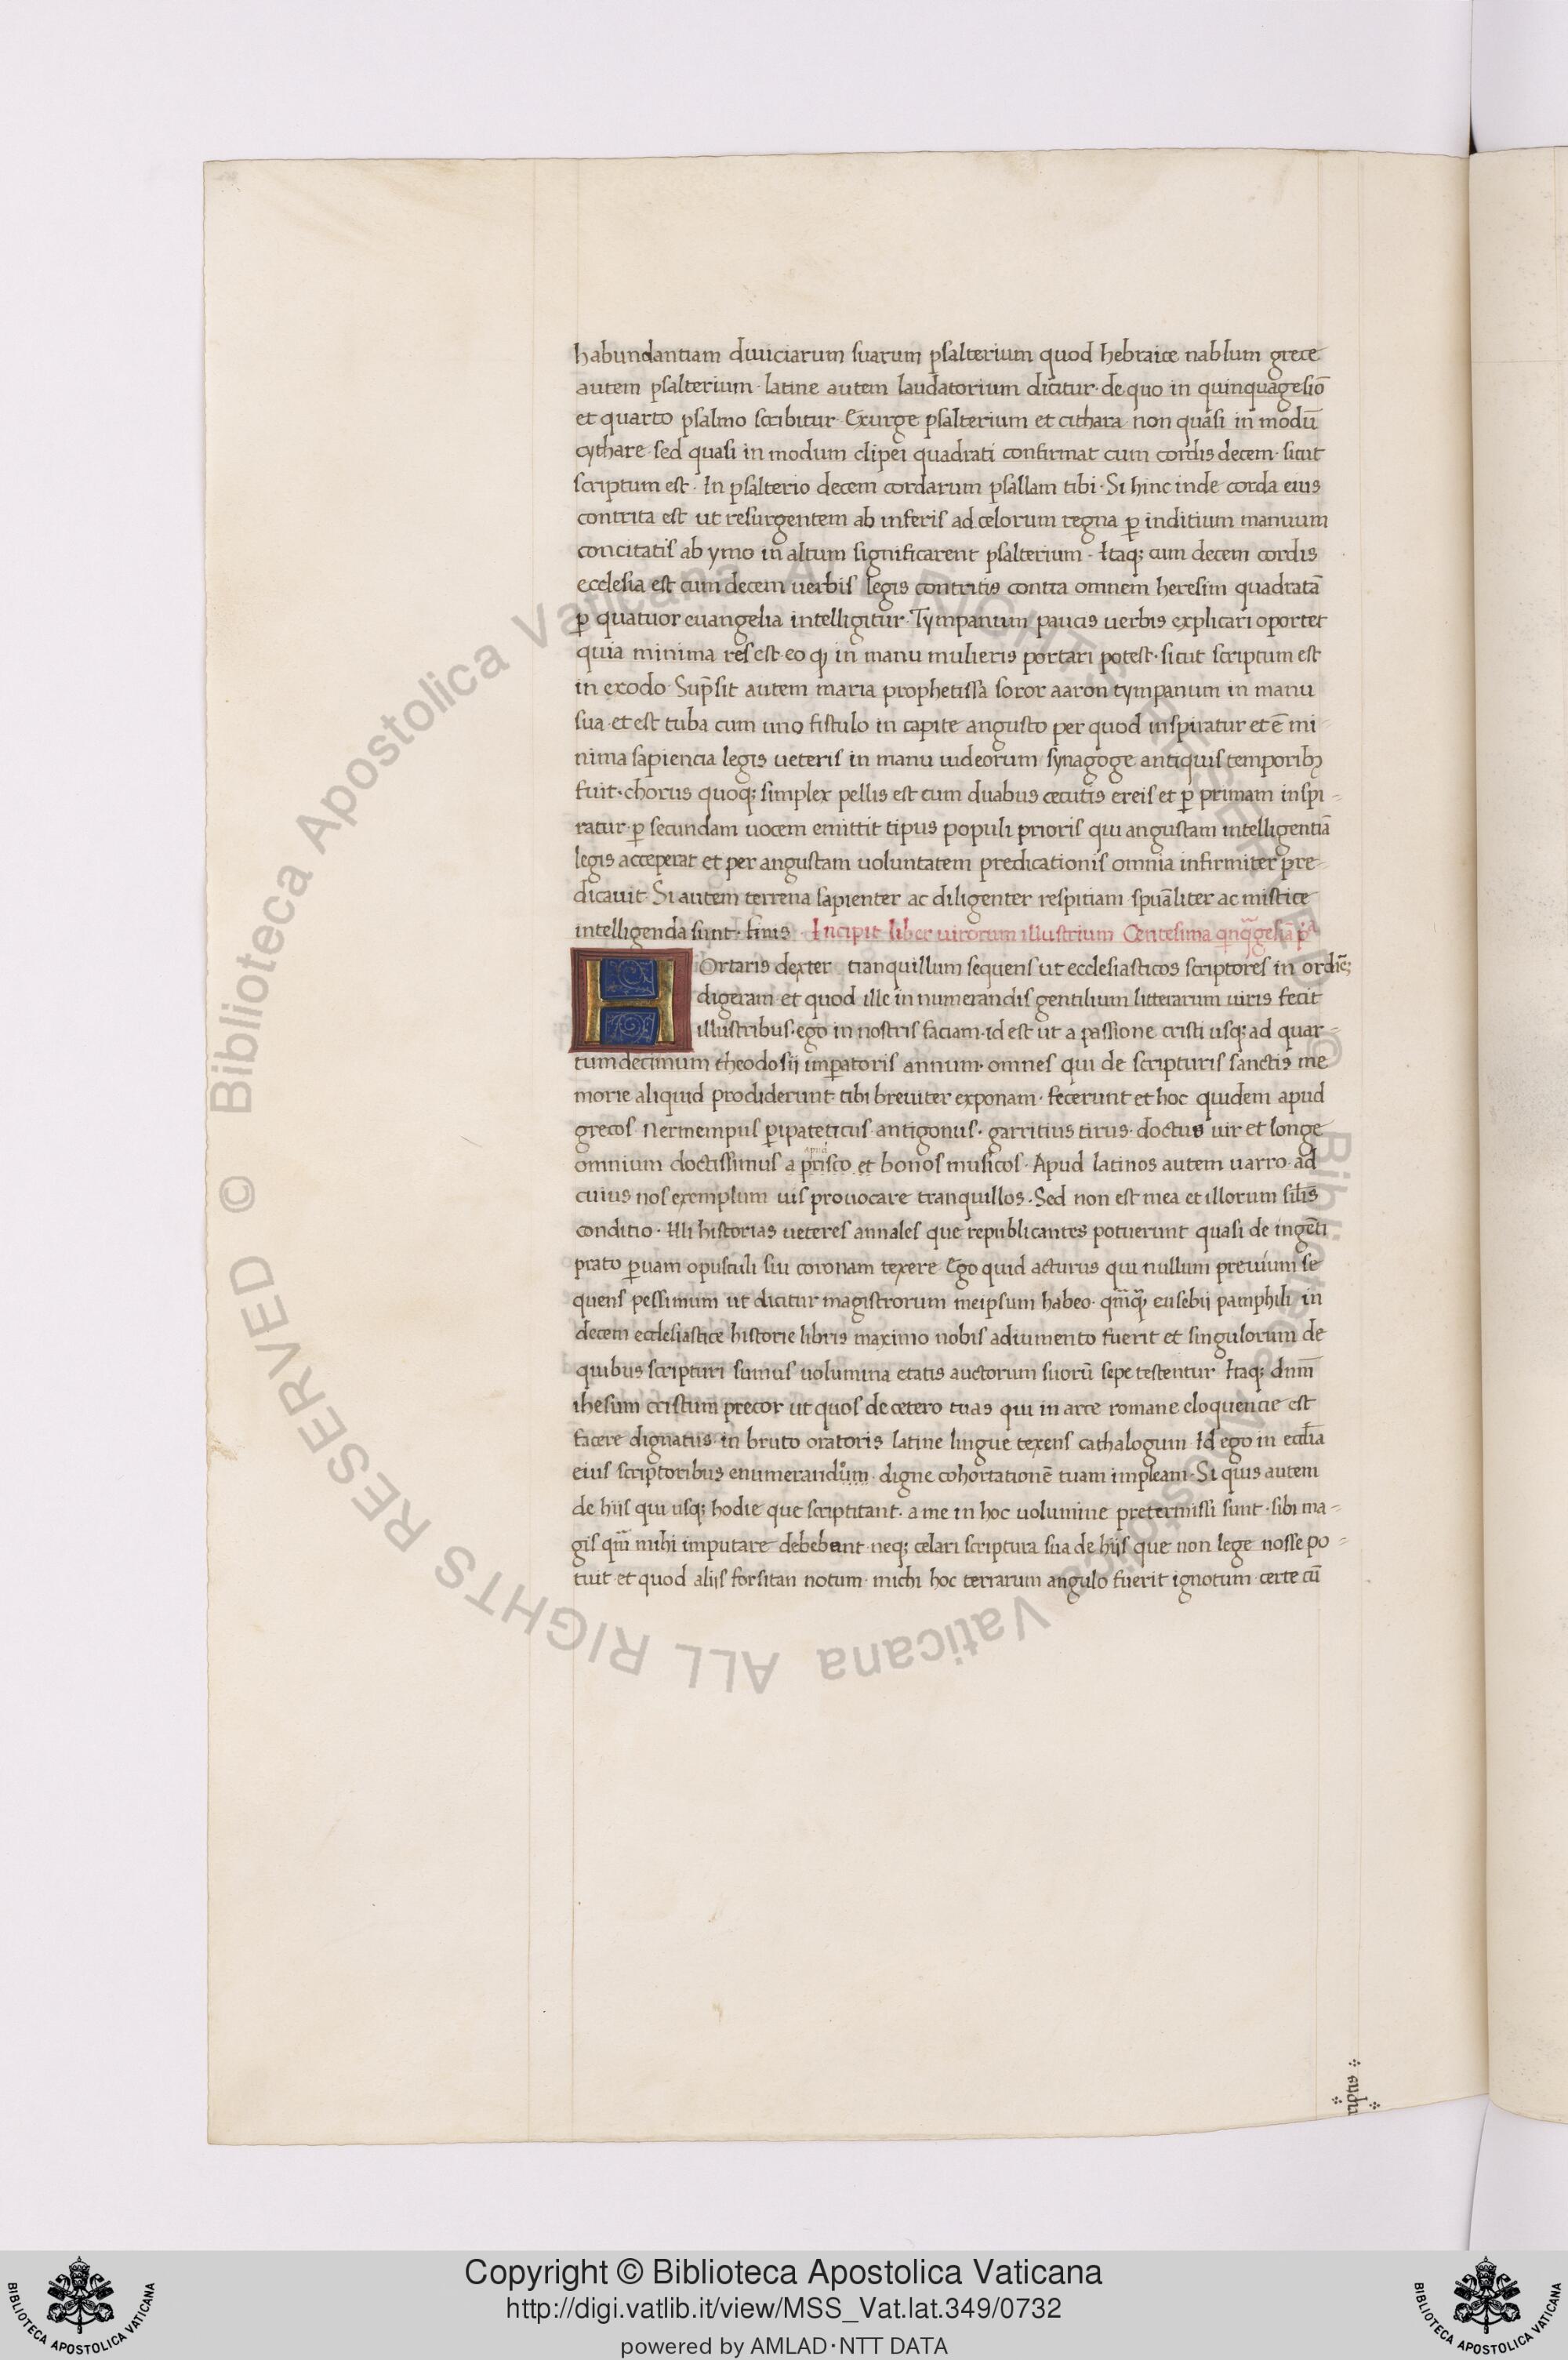 habundantiam diuiciarum suarum psalterium quod hebraice nablum grece
autem psalterium · latine autem laudatorium dicitur · de quo in quinquagesīo
et quarto psalmo scribitur · Exurge psalterium et cithara · non quasi in modū
cythare · sed quasi in modum clipei quadrati confirmat cum cordis decem · sicut
scriptum est · In psalterio decem cordarum psallam tibi · Si hinc inde corda eius
contrita est ut resurgentem ab inferis ad celorum regna ꝑ inditium manuum
concitatis ab ymo in altum significarent psalterium · Itaqꝫ cum decem cordis
ecclesia est cum decem uerbis legis contritis contra omnem heresim quadratā
ꝑ quatuor euangelia intelligitur · Tympanum paucis uerbis explicari oportet
quia minima res est eo qꝫ in manu mulieris portari potest · sicut scriptum est
in exodo · Sup̄sit autem maria prophetissa soror aaron tympanum in manu
sua · et est tuba cum uno fistulo in capite angusto per quod inspiratur et ē mi-
nima sapiencia legis ueteris in manu iudeorum synagoge antiquis temporibꝫ
fuit · chorus quoqꝫ simplex pellis est cum duabus cecutis ereis et ꝑ primam inspi-
ratur · ꝑ secundam uocem emittit tipus populi prioris qui angustam intelligentiā
legis acceperat et per angustam uoluntatem predicationis omnia infirmiter pre-
dicauit · Si autem terrena sapienter ac diligenter respitiam spūaliter ac mistice
intelligenda sunt · finis · Incipit liber uirorum illustrium Centesima
HOrtaris dexter tranquillum sequens ut ecclesiasticos scriptores in ordiēꝫ
digeram · et quod ille in numerandis gentilium litterarum uiris fecit
illustribus · ego in nostris faciam · id est ut a passione cristi usqꝫ ad quar-
tumdecimum theodosij imꝑatoris annum · omnes qui de scripturis sanctis me
morie aliquid prodiderunt tibi breuiter exponam · fecerunt et hoc quidem apud
grecos Nermempus ꝑipateticus antigonus · garritius tirus · doctus uir et longe
omnium doctissimus a prisco et bonos musicos · Apud latinos autem uarro · ad
apud
cuius nos exemplum uis prouocare tranquillos · Sed non est mea et illorum sił̄is
conditio · Illi historias ueteres annales que republicantes potuerunt quasi de ingēti
prato ꝑuam opusculi sui coronam texere Ego quid acturus qui nullum preuium se
quens pessimum ut dicitur magistrorum meipsum habeo · qm̄qꝫ eusebij pamphili in
decem ecclesiastice historie libris maximo nobis adiumento fuerit et singulorum de
quibus scripturi sumus uolumina etatis auctorum suorū sepe testentur Itaqꝫ dnm̄
ihesum cristum precor ut quos de cetero tuas qui in arce romane eloquencie est
facere dignatus · in bruto oratoris latine lingue texens cathalogum Id ego in eccł̄ia
eius scriptoribus enumerandum · digne cohortationē tuam impleam · Si quis autem
de hijs qui usqꝫ hodie que scriptitant · a me in hoc uolumine pretermissi sunt · sibi ma-
gis qm̄ mihi imputare debebant neqꝫ celari scriptura sua de hijs que non lege nosse po-
tuit · et quod alijs forsitan notum · michi hoc terrarum angulo fuerit ignotum · certe cū
Copyright © Biblioteca Apostolica Vaticana
http://digi.vatlib.it/view/MSS_Vat.lat.349/0732
powered by AMLAD·NTT DATA
BIBLIOTECA APOSTOLICA VATICANA
BIBLIOTECA APOSTOLICA VATICANA
© Biblioteca Apostolica Vaticana ALL RIGHTS RESERVED
© Biblioteca Apostolica Vaticana ALL RIGHTS RESERVED